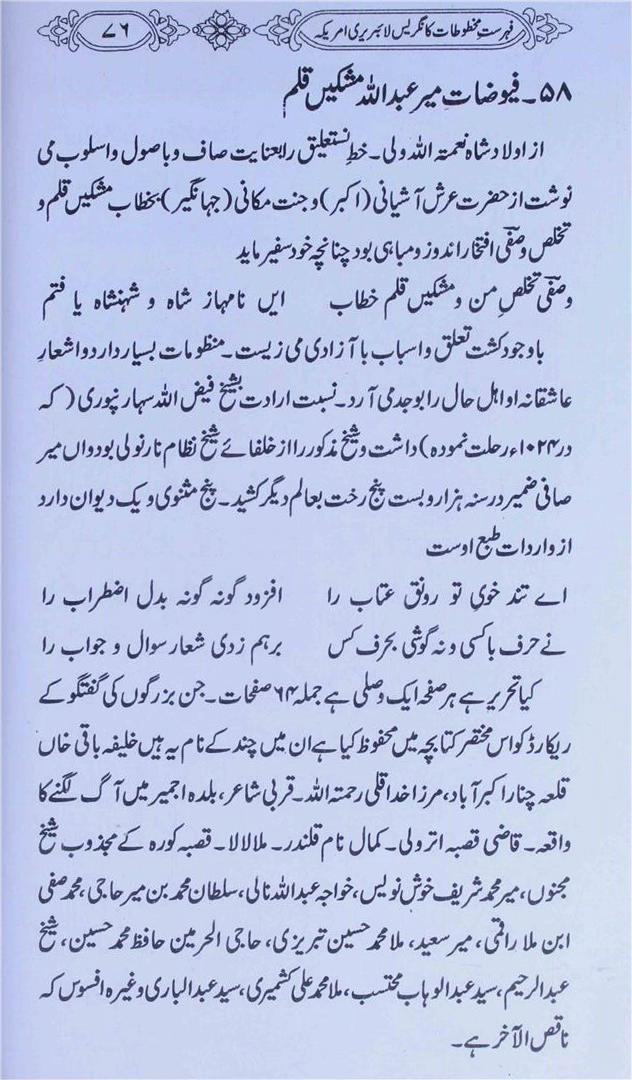 فہرست مخطوطات کانگریس لائبریری امریکہ
۷۶
۵۸۔ فیوضات میر عبداللہ مشکیں قلم
از اولاد شاہ نعمتہ اللہ ولی۔ خط نستعلیق را بعنایت صاف و باصول و اسلوب می
نوشت از حضرت عرش آشیانی (اکبر) و جنت مکانی (جہانگیر) بخطاب مشکیں قلم و
تخلص وصفی افتخار اندوز و مباہی بود چنانچہ خود سفیر ماید
وصفی تخلص من و مشکیں قلم خطاب ایں نامہا ز شاہ و شہنشاہ یافتم
باوجود کشت تعلق و اسباب با آزادی می زیست۔ منظومات بسیار دارد و اشعار
عاشقانہ او اہل حال را بوجد می آرد۔ نسبت ارادت بشیخ فیض اللہ سہارنپوری (کہ
در ۱۰۲۴ء رحلت نمودہ) داشت و شیخ مذکور را از خلفائے شیخ نظام نارنولی بود واں میر
صافی ضمیر در سنہ ہزار و بست پنج رخت بعالم دیگر کشید۔ پنج مثنوی و یک دیوان دارد
از واردات طبع اوست
اے تند خوی تو رونق عتاب را افزود گونہ گونہ بدل اضطراب را
نے حرف باکسی و نہ گوشی بحرف کس برہم زدی شعار سوال و جواب را
کیا تحریر ہے ہر صفحہ ایک وصلی ہے جملہ ۶۴ صفحات۔ جن بزرگوں کی گفتگو کے
ریکارڈ کو اس مختصر کتابچہ میں محفوظ کیا ہے ان میں چند کے نام یہ ہیں خلیفہ باقی خاں
قلعہ چنار اکبر آباد، مرزا خدا قلی رحمتہ اللہ۔ قربی شاعر، بلدہ اجمیر میں آگ لگنے کا
واقعہ۔ قاضی قصبہ اترولی۔ کمال نام قلندر۔ ملا لالا۔ قصبہ کورہ کے مجذوب شیخ
مجنوں، میر محمد شریف خوش نویس، خواجہ عبداللہ نالی، سلطان محمد بن میر حاجی، محمد صفی
ابن ملا راقمی، میر سعید، ملا محمد حسین تبریزی، حاجی الحرمین حافظ محمد حسین، شیخ
عبدالرحیم، سید عبدالوہاب محتسب، ملا محمد علی کشمیری، سید عبدالباری وغیرہ افسوس کہ
ناقص الآخر ہے۔